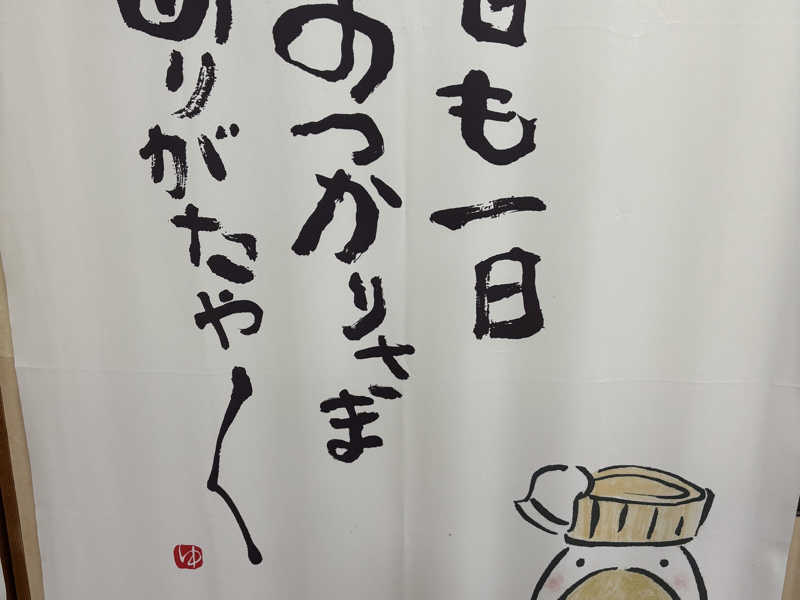 日も一日
のつかりさま
ありがたや〜
ゆ